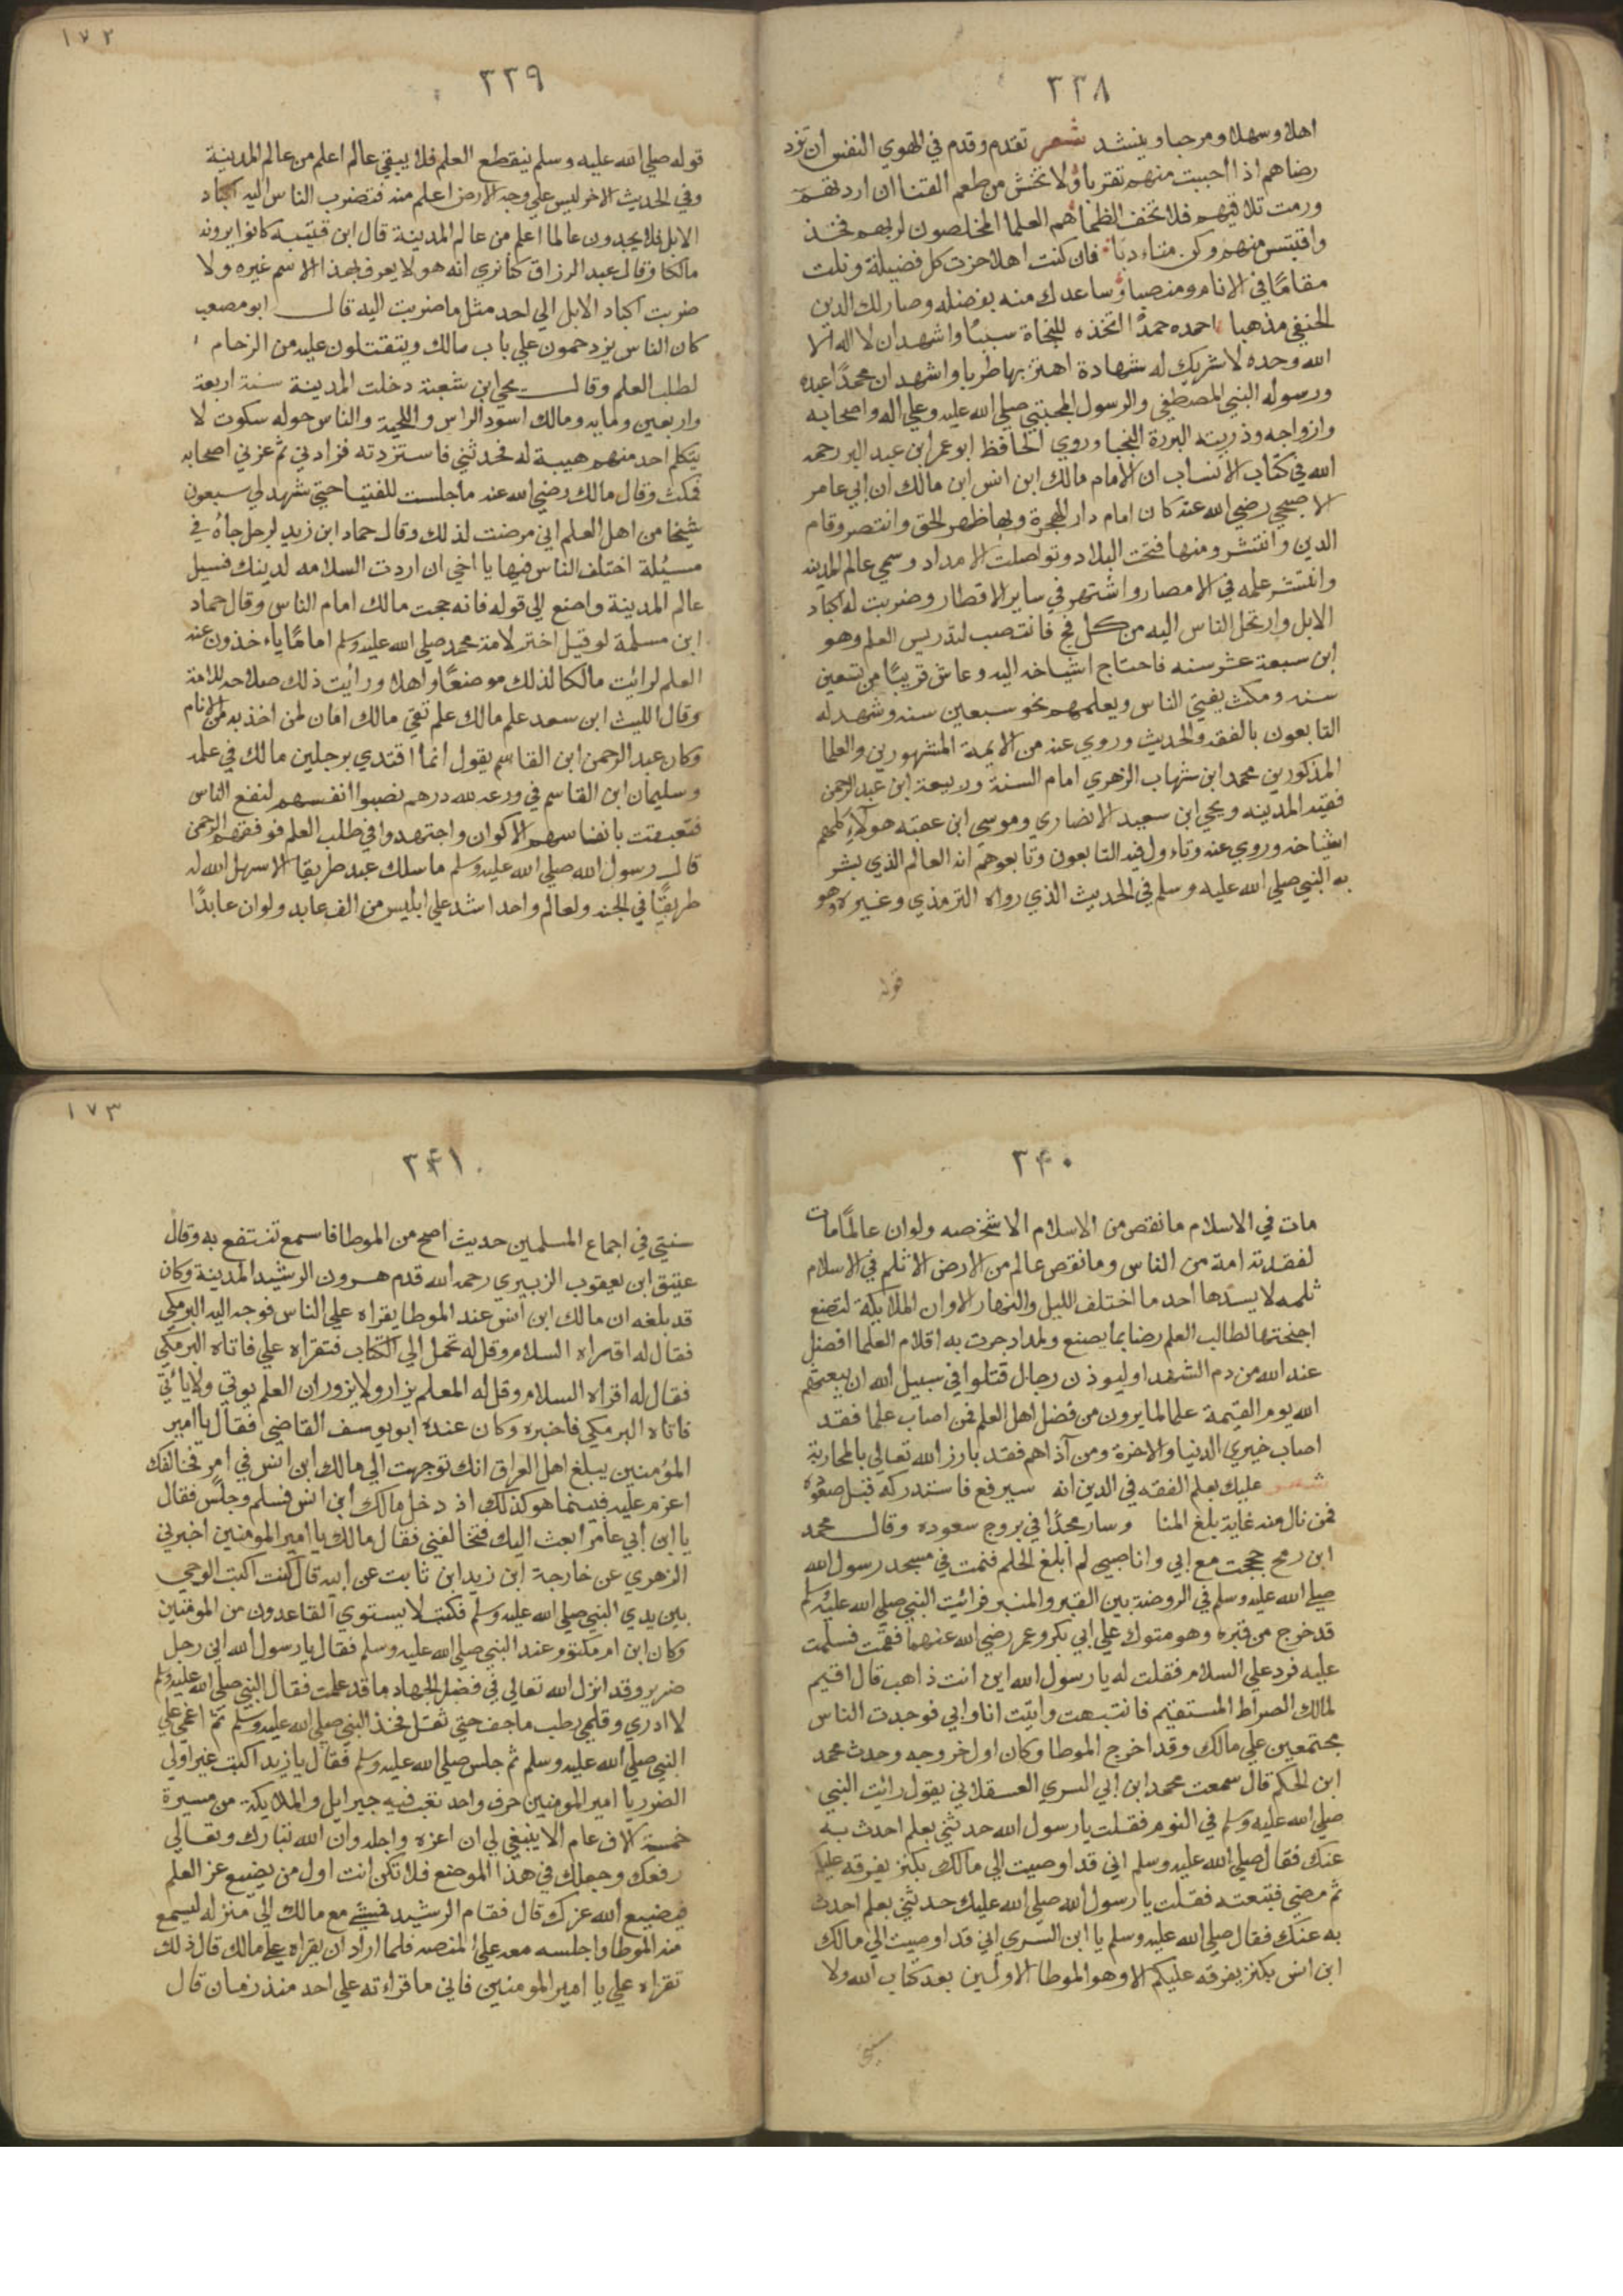 ٣٣٨
اهلا وسهلا ومرحبا وينشد شعر تقدم وقدم في الهوي النفس ان ترد
رضاهم اذا احببت منهم تقربا ولا تخش من طعم القنا ان اردتهم
ورمت تلاقيهم فلا تخف الظما هم العلما المخلصون لربهم فخذ
واقتبس منهم وكن متادبا فان كنت اهلا حزت كل فضيلة ونلت
مقامًا في الانام ومنصبا وساعدك منه بفضله وصار لك الدين
الحنيفي مذهبا احمده حمدًا اتخذه للنجاة سببًا واشهد ان لا اله الا
الله وحده لا شريك له شهادة اهتز بها طربا واشهد ان محمدًا عبده
ورسوله النبي المصطفي والرسول المجتبي صلي الله عليه وعلي اله واصحابه
وازواجه وذريته البررة النجبا وروي الحافظ ابو عمر ابن عبد البر رحمه
الله في كتاب الانساب ان الامام مالك ابن انس ابن مالك ان ابي عامر
الاصبحي رضي الله عنه كان امام دار الهجرة وبها ظهر الحق وانتصر وقام
الدين وانتشر ومنها فتحت البلاد وتواصلت الامداد وسمي عالم المدينه
وانتشر علمه في الامصار واشتهر في ساير الاقطار وضربت له اكباد
الابل وارتحل الناس اليه من كل فج فانتصب لتدريس العلم وهو
ابن سبعة عشر سنه فاحتاج اشياخه اليه وعاش قريبًا من تسعين
سنه ومكث يفتي الناس ويعلمهم نحو سبعين سنه وشهد له
التابعون بالفقه والحديث وروي عنه من الايمة المشهورين والعلما
المذكورين محمد ابن شهاب الزهري امام السنة وربيعة ابن عبد الرحمن
فقيه المدينه ويحي ابن سعيد الانصاري وموسي ابن عقبه هولاء كلهم
اشياخه وروي عنه وتاء ول فيه التابعون وتابعوهم انه العالم الذي بشر
به النبي صلي الله عليه وسلم في الحديث الذي رواه الترمذي وغيره وهو
قوله
١٧٢
٣٣٩
قوله صلي الله عليه وسلم ينقطع العلم فلا يبقي عالم اعلم من عالم المدينة
وفي الحديث الاخر ليس علي وجه الارض اعلم منه فتضرب الناس اليه اكباد
الابل فلا يجدون عالما اعلم من عالم المدينة قال ابن قتيبة كانوا يرونه
مالكا وقال عبد الرزاق كنا نري انه هو لا يعرف بهذا الاسم غيره ولا
ضربت اكباد الابل الي احد مثل ما ضربت اليه قال ابو مصعب
كان الناس يزدحمون علي باب مالك ويقتتلون عليه من الزحام
لطلب العلم وقال يحي ابن شعبة دخلت المدينة سنة اربعة
واربعين ومايه ومالك اسود الراس واللحية والناس حوله سكوت لا
يتكلم احد منهم هيبة له فحدثني فاستزدته فزادني ثم غزني اصحابه
فمكث وقال مالك رضي الله عنه ما جلست للفتيا حتي شهد لي سبعون
شيخا من اهل العلم اني مرضت لذلك وقال حماد ابن زيد لرجل جاءه في
مسيلة اختلف الناس فيها يا اخي ان اردت السلامه لدينك فسيل
عالم المدينة واصنع الي قوله فانه حجت مالك امام الناس وقال حماد
ابن مسلمة لو قيل اختر لامة محمد صلي الله عليه وسلم امامًا ياء خذون عنه
العلم لرائيت مالكا لذلك موضعًا واهلا ورأيت ذلك صلاحه للامة
وقال الليث ابن سعد علم مالك علم تقي مالك امان لمن اخذ به من الانام
وكان عبد الرحمن ابن القاسم يقول انما اقتدي برجلين مالك في علمه
وسليمان ابن القاسم في ورعه لله درهم نصبوا انفسهم لنفع الناس
فتعبقت بانفاسهم الاكوان واجتهدوا في طلب العلم فوفقهم الرحمن
قال رسول الله صلي الله عليه وسلم ما سلك عبد طريقا الا سهل الله له
طريقًا في الجنه ولعالم واحد اشد علي ابليس من الف عابد ولو ان عابدًا
٣٤٠
مات في الاسلام ما نقص من الاسلام الا شخصه ولو ان عالمًا مات
لفقدته امة من الناس وما نقص عالم من الارض الا ثلم في الاسلام
ثلمه لا يسدها أحد ما اختلف الليل والنهار الا وان الملايكة لتضع
اجنحتها لطالب العلم رضا بما يصنع ولمداد جرت به اقلام العلما افضل
عند الله من دم الشهدا وليوذن رجال قتلوا في سبيل الله ان يبعثهم
الله يوم القيمة علما لما يرون من فضل اهل العلم فمن اصاب علما فقد
اصاب خيري الدنيا والاخرة ومن آذاهم فقد بارز الله تعالي بالمحاربة
شعر عليك بعلم الفقه في الدين انه سيرفع فاستدركه قبل صعوده
فمن نال منه غاية بلغ المنا وسار مجدًا في بروج سعوده وقال محمد
ابن رمح حججت مع ابي وانا صبي لم ابلغ الحلم فنمت في مسجد رسول الله
صلي الله عليه وسلم في الروضة بين القبر والمنبر فرائيت النبي صلي الله عليه وسلم
قد خرج من قبره وهو متوك علي ابي بكر وعمر رضي الله عنهما فقمت فسلمت
عليه فرد علي السلام فقلت له يا رسول الله اين انت ذاهب قال اقيم
لمالك الصراط المستقيم فانتبهت واتيت انا وابي فوجدت الناس
مجتمعين علي مالك وقد اخرج الموطا وكان اول خروجه وحدث محمد
ابن الحكم قال سمعت محمد ابن ابي السري العسقلاني يقول رائيت النبي
صلي الله عليه وسلم في النوم فقلت يا رسول الله حدثني بعلم احدث به
عنك فقال صلي الله عليه وسلم اني قد اوصيت الي مالك بكنز يفرقه عليكم
ثم مضي فتبعته فقلت يا رسول الله صلي الله عليك حدثني بعلم احدث
به عنك فقال صلي الله عليه وسلم يا ابن السري اني قد اوصيت الي مالك
ابن انس بكنز يفرقه عليكم الا وهو الموطا الا وليس بعد كتاب الله ولا
١٧٣
٣٤١
سنتي في اجماع المسلمين حديث اصح من الموطا فاسمع تنتفع به وقال
عتيق ابن يعقوب الزبيري رحمه الله قدم هرون الرشيد المدينة وكان
قد بلغه ان مالك ابن انس عند الموطا يقراه علي الناس فوجه اليه البرمكي
فقال له اقراه السلام وقل له تحمل الي الكتاب فتقراه علي فاتاه البرمكي
فقال له اقراه السلام وقل له المعلم يزار ولا يزور ان العلم يوتي ولا يأتي
فاتاه البرمكي فاخبره وكان عنده ابو يوسف القاضي فقال يا امير
المؤمنين يبلغ اهل العراق انك توجهت الي مالك ابن انس في امر فخالفك
اعزم عليه فبينما هو كذلك اذ دخل مالك ابن انس فسلم وجلس فقال
يا ابن ابي عامر ابعث اليك فتخالفني فقال مالك يا امير المومنين اخبرني
الزهري عن خارجة ابن زيد ابن ثابت عن ابيه قال كنت اكتب الوحي
بين يدي النبي صلي الله عليه وسلم فكتبت لا يستوي القاعدون من المومنين
وكان ابن ام مكتوم عند النبي صلي الله عليه وسلم فقال يا رسول الله اني رجل
ضرير وقد انزل الله تعالي في فضل الجهاد ما قد علمت فقال النبي صلي الله عليه وسلم
لا ادري وقلمي رطب ما جف حتي ثقل فخذ النبي صلي الله عليه وسلم ثم اغمي علي
النبي صلي الله عليه وسلم ثم جلس صلي الله عليه وسلم فقال يا زيد اكتب غير اولي
الضرر يا امير المومنين حرف واحد نعب فيه جبرايل والملايكة من مسيرة
خمسة الاف عام الا ينبغي لي ان اعزه واجله وان الله تبارك وتعالي
رفعك وجعلك في هذا الموضع فلا تكن انت اول من يضيع عز العلم
فيضيع الله عزك قال فقام الرشيد فمشي مع مالك الي منزله ليسمع
منه الموطا واجلسه معه علي المنصه فلما اراد ان يقراه علي مالك قال ذلك
تقراه علي يا امير المومنين فاني ما قراءته علي احد منذ زمان قال